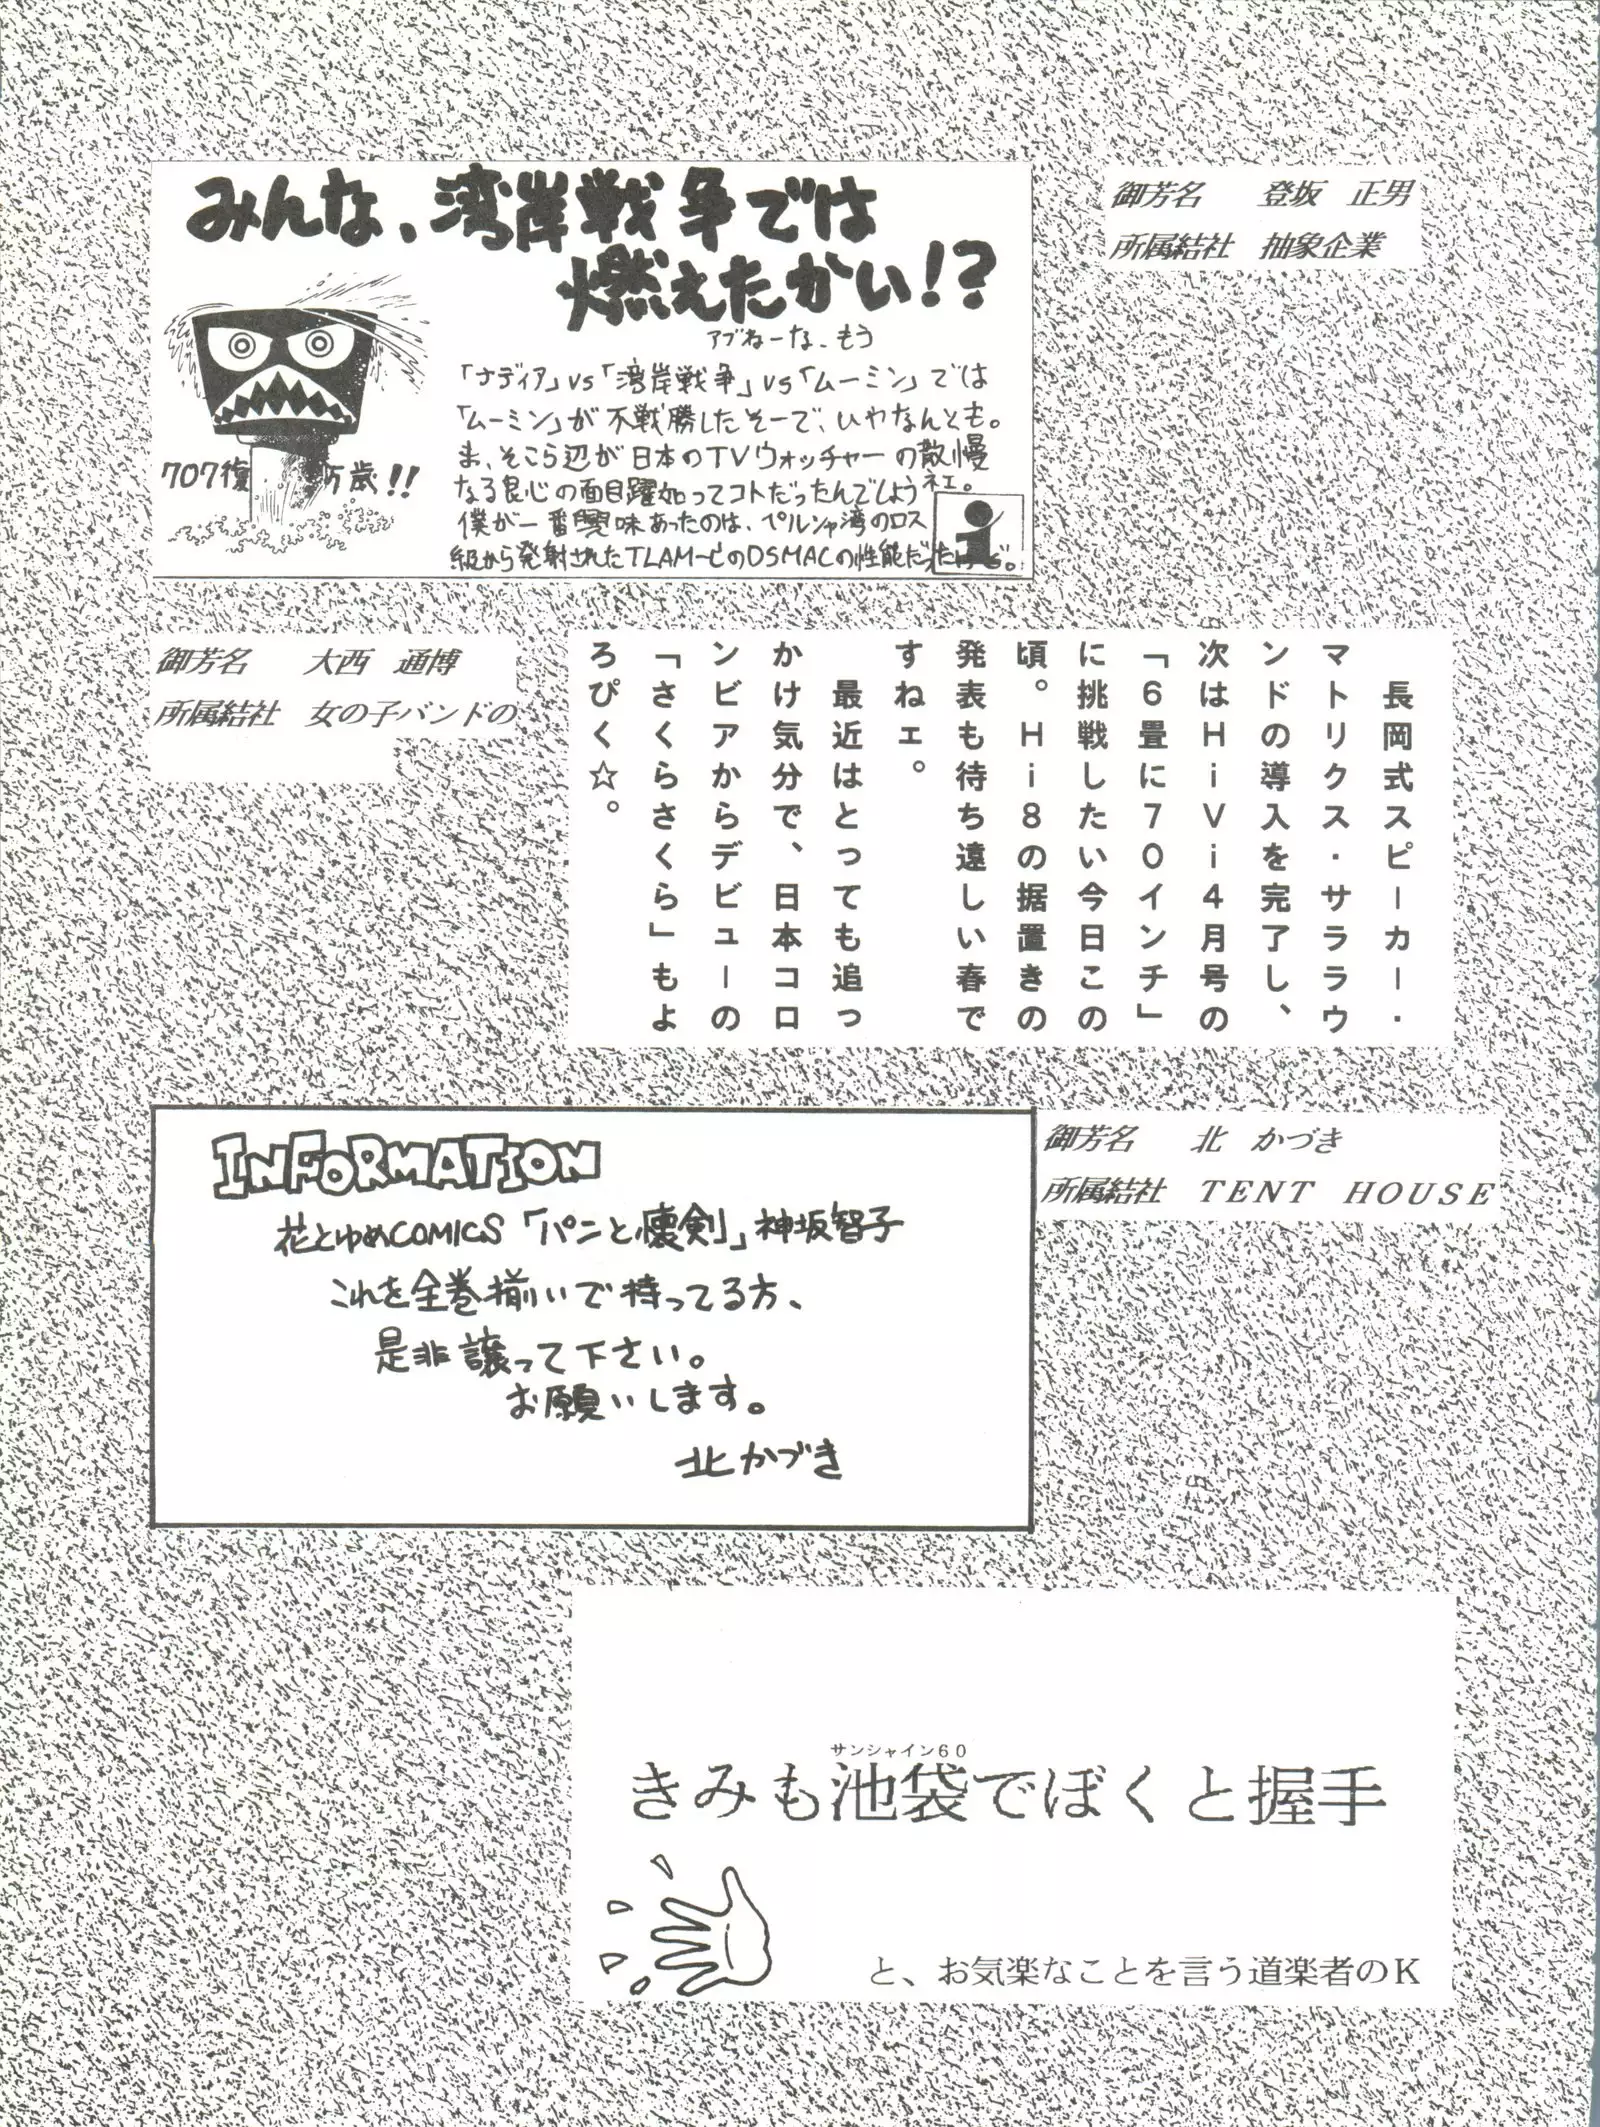 みんな、湾岸戦争では
燃えたかい!?
アブねーな、もう
「ナディア」vs「湾岸戦争」vs「ムーミン」では
「ムーミン」が不戦勝したそーで、いやなんとも。
ま、そこら辺が日本のTVウォッチャーの散慢
なる良心の面目躍如ってコトだったんでしょうネェ。
僕が一番興味あったのは、ペルシャ湾のロス
級から発射されたTLAM-CのDSMACの性能だったけど。
707復
万歳!!
御芳名 登坂 正男
所属結社 抽象企業
御芳名 大西 通博
所属結社 女の子バンドの
長岡式スピーカー・
マトリクス・サラウ
ンドの導入を完了し、
次はHiVi4月号の
「6畳に70インチ」
に挑戦したい今日この
頃。Hi8の据置きの
発表も待ち遠しい春で
すねェ。
最近はとっても追っ
かけ気分で、日本コロ
ンビアからデビューの
「さくらさくら」もよ
ろぴく☆。
INFORMATION
花とゆめCOMICS「パンと懐剣」神坂智子
これを全巻揃いで持ってる方、
是非譲って下さい。
お願いします。
北かづき
御芳名 北 かづき
所属結社 TENT HOUSE
サンシャイン60
きみも池袋でぼくと握手
と、お気楽なことを言う道楽者のK